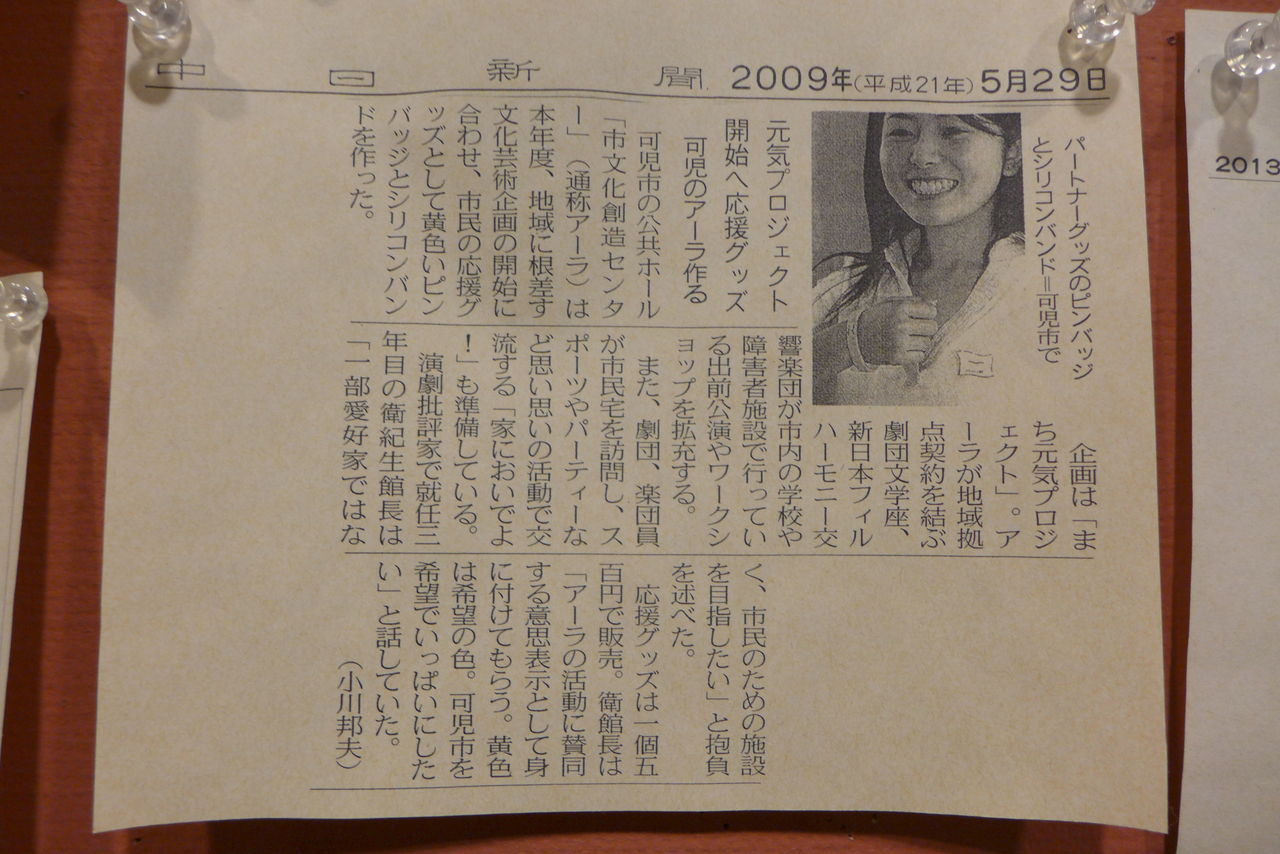 中日新聞 2009年(平成21年)5月29日
パートナーグッズのピンバッジ
とシリコンバンド=可児市で
元気プロジェクト
開始へ応援グッズ
可児のアーラ作る
可児市の公共ホール
「市文化創造センタ
ー」(通称アーラ)は
本年度、地域に根差す
文化芸術企画の開始に
合わせ、市民の応援グ
ッズとして黄色いピン
バッジとシリコンバン
ドを作った。
企画は「ま
ち元気プロジ
ェクト」。ア
ーラが地域拠
点契約を結ぶ
劇団文学座、
新日本フィル
ハーモニー交
響楽団が市内の学校や
障害者施設で行ってい
る出前公演やワークシ
ョップを拡充する。
また、劇団、楽団員
が市民宅を訪問し、ス
ポーツやパーティーな
ど思い思いの活動で交
流する「家においでよ
!」も準備している。
演劇批評家で就任三
年目の衛紀生館長は
「一部愛好家ではな
く、市民のための施設
を目指したい」と抱負
を述べた。
応援グッズは一個五
百円で販売。衛館長は
「アーラの活動に賛同
する意思表示として身
に付けてもらう。黄色
は希望の色。可児市を
希望でいっぱいにした
い」と話していた。
(小川邦夫)
2013